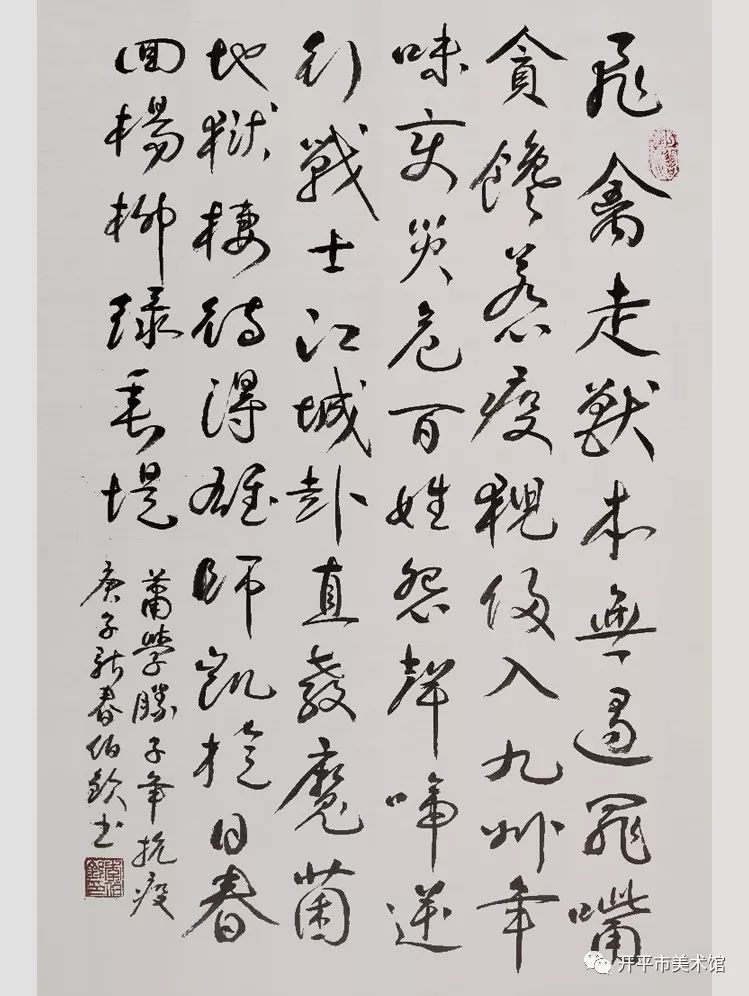 飛禽走獸本無過罪嘴
貪饞惹疫猊侵入九州年
味變災危百姓怨聲啼逆
行戰士江城赴直教魔菌
地獄棲待得雄師凱旋日春
回楊柳綠垂堤
蕭學勝子年抗疫
庚子新春伯欽書
开平市美术馆